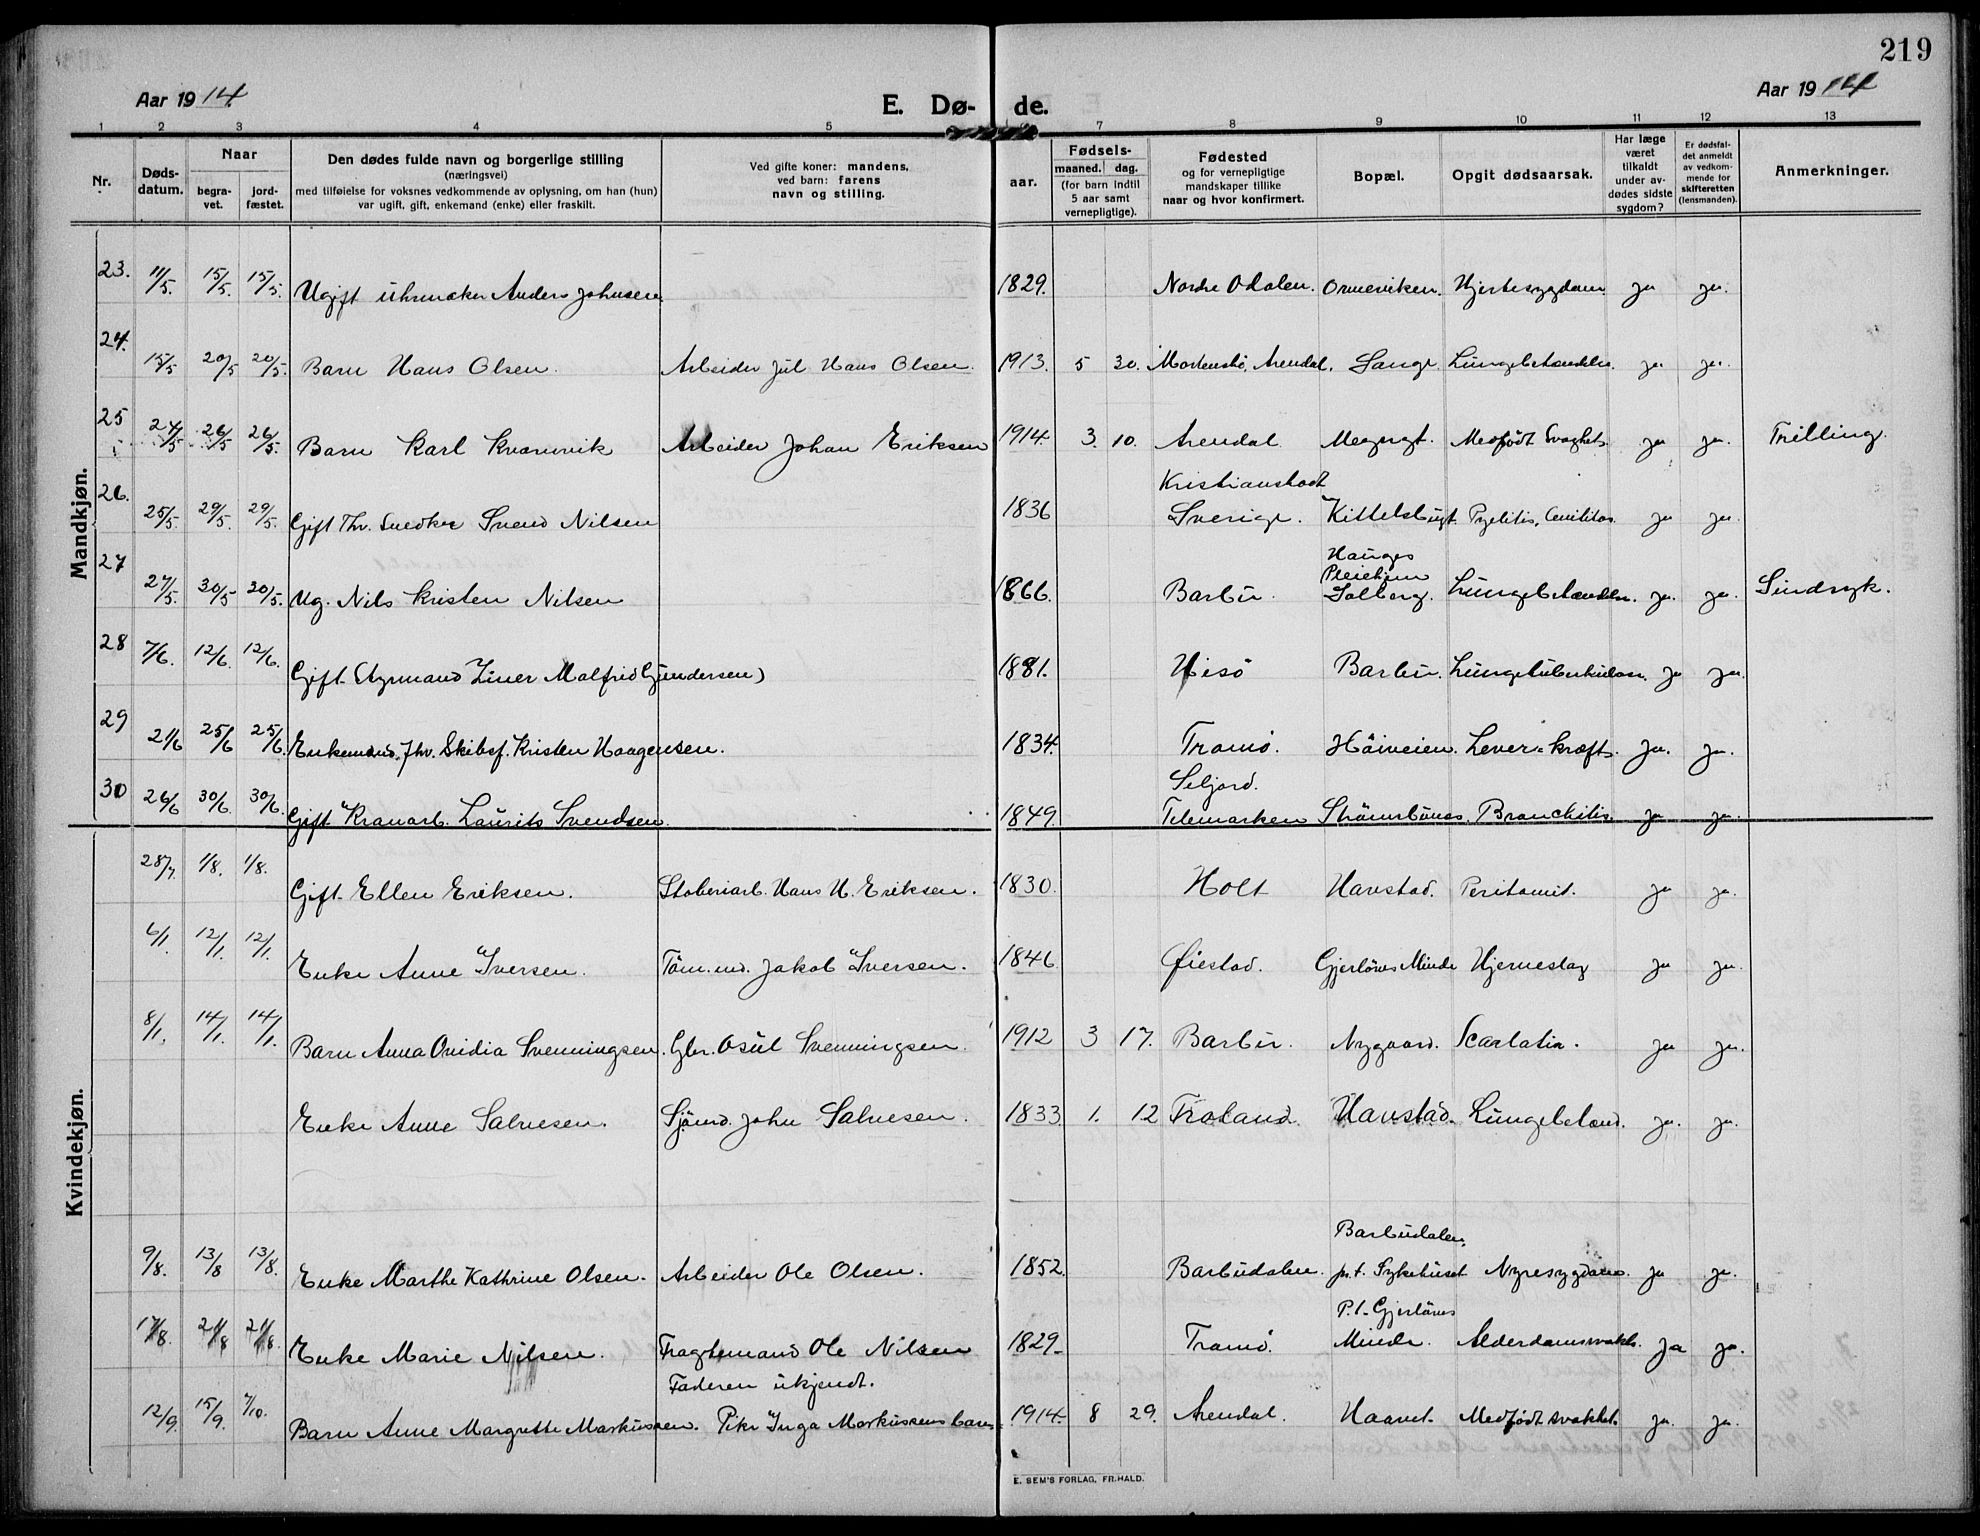 219
Aar 1914.
E. Dø- de.
Aar 1914
1 2 3 4 5 7 8 9 10 11 12 13
Nr.
Døds-
datum.
Naar
begra-
vet.
jord-
fæstet.
Den dødes fulde navn og borgerlige stilling
(næringsvei)
med tilføielse for voksnes vedkommende av oplysning, om han (hun)
var ugift, gift, enkemand (enke) eller fraskilt.
Ved gifte koner: mandens,
ved barn: farens
navn og stilling.
aar.
Fødsels-
maaned. dag.
(for barn indtil
5 aar samt
vernepligtige).
Fødested
og for vernepligtige
mandskaper tillike
naar og hvor konfirmert.
Bopæl.
Opgit dødsaarsak.
Har læge
været
tilkaldt
under av-
dødes sidste
sygdom?
Er dødsfal-
det anmeldt
av vedkom-
mende for
skifteretten
(lensmanden).
Anmerkninger.
Mandkjøn.
23. 11/5. 15/5. 15/5. Ugift uhrmaker Anders Johnsen. 1829. Nordre Odalen. Ormeviken. Hjertesygdom ja ja.
24. 15/5 20/5 20/5. Barn Hans Olsen. Arbeider Jul Hans Olsen. 1913. 5 30. Mortensbö, Arendal. Songe Lungebetændelse. ja ja.
25 24/5 26/5 26/5. Barn Karl Kvarnvik Arbeider Johan Eriksen 1914. 3. 10. Arendal Medfödt Svaghet. ja ja. Trilling.
Kristianstadt
26. 25/5. 29/5. 29/5. Gift Fhv. Snedker Svend Nilsen 1836 Sverige. Kittelsbugt. ja ja.
Hauges
Pleiehjem
27 27/5. 30/5 30/5. Ug. Nils Kristen Nilsen 1866. Barbu. Solberg. Lungebetændelse. ja. ja. Sindsyk.
28 7/6. 12/6. 12/6. Gift Malfrid Gundersen) 1881. Hisö Barbu. Lungetuberkulose. ja ja.
29 21/6 25/6 25/6. Enkemand, fhv. Skibsf. Kristen Haagensen. 1834. Tromö. Höiveien. Lever-kræft. ja. ja.
Seljord.
30 26/6 30/6. 30/6. Gift Kranarb. Laurits Svendsen. 1849. Telemarken Strömsbunes. Bronchitis. ja ja.
Kvindekjøn.
28/7. 1/8. 1/8. Gift Ellen Eriksen. Stoberiarb. Hans H. Eriksen. 1830. Holt Havstad. Peritonit. ja ja.
6/1. 12/1. 12/1. Enke Anne Iversen. Töm.md. Jakob Iversen. 1846. Øiestad. Gjerlöws Minde Hjerneslag ja ja.
8/1. 14/1. 14/1. Barn Anna Ovidia Svenningsen. Gbr. Osul Svenningsen. 1912 3 17. Barbu. Nygaard. Scarlatin. ja ja.
Enke Anne Salvesen. Sjömd. John Salvesen. 1833. 1. 12 Froland. Havstad. Lungebetænd. ja. ja.
Barbudalen,
9/8. 13/8 13/8. Enke Marthe Kathrine Olsen. Arbeider Ole Olsen. 1852. Barbudalen. p.t. Sykehuset Nyresygdom. ja ja.
P.t. Gjerlöws
17/8. 21/8 21/8. Enke Marie Nilsen. Fragtemand Ole Nilsen 1829. Tromö. Minde. Alderdomssvakh. ja ja.
Faderen ukjendt.
12/9. 15/9. 7/10. Barn Anne Margrethe Markussen. Pike Inga Markussens barn 1914. 8 29. Arendal. Haavet. Medfödt svakhet. ja. ja.
E. SEM'S FORLAG, FR.HALD.